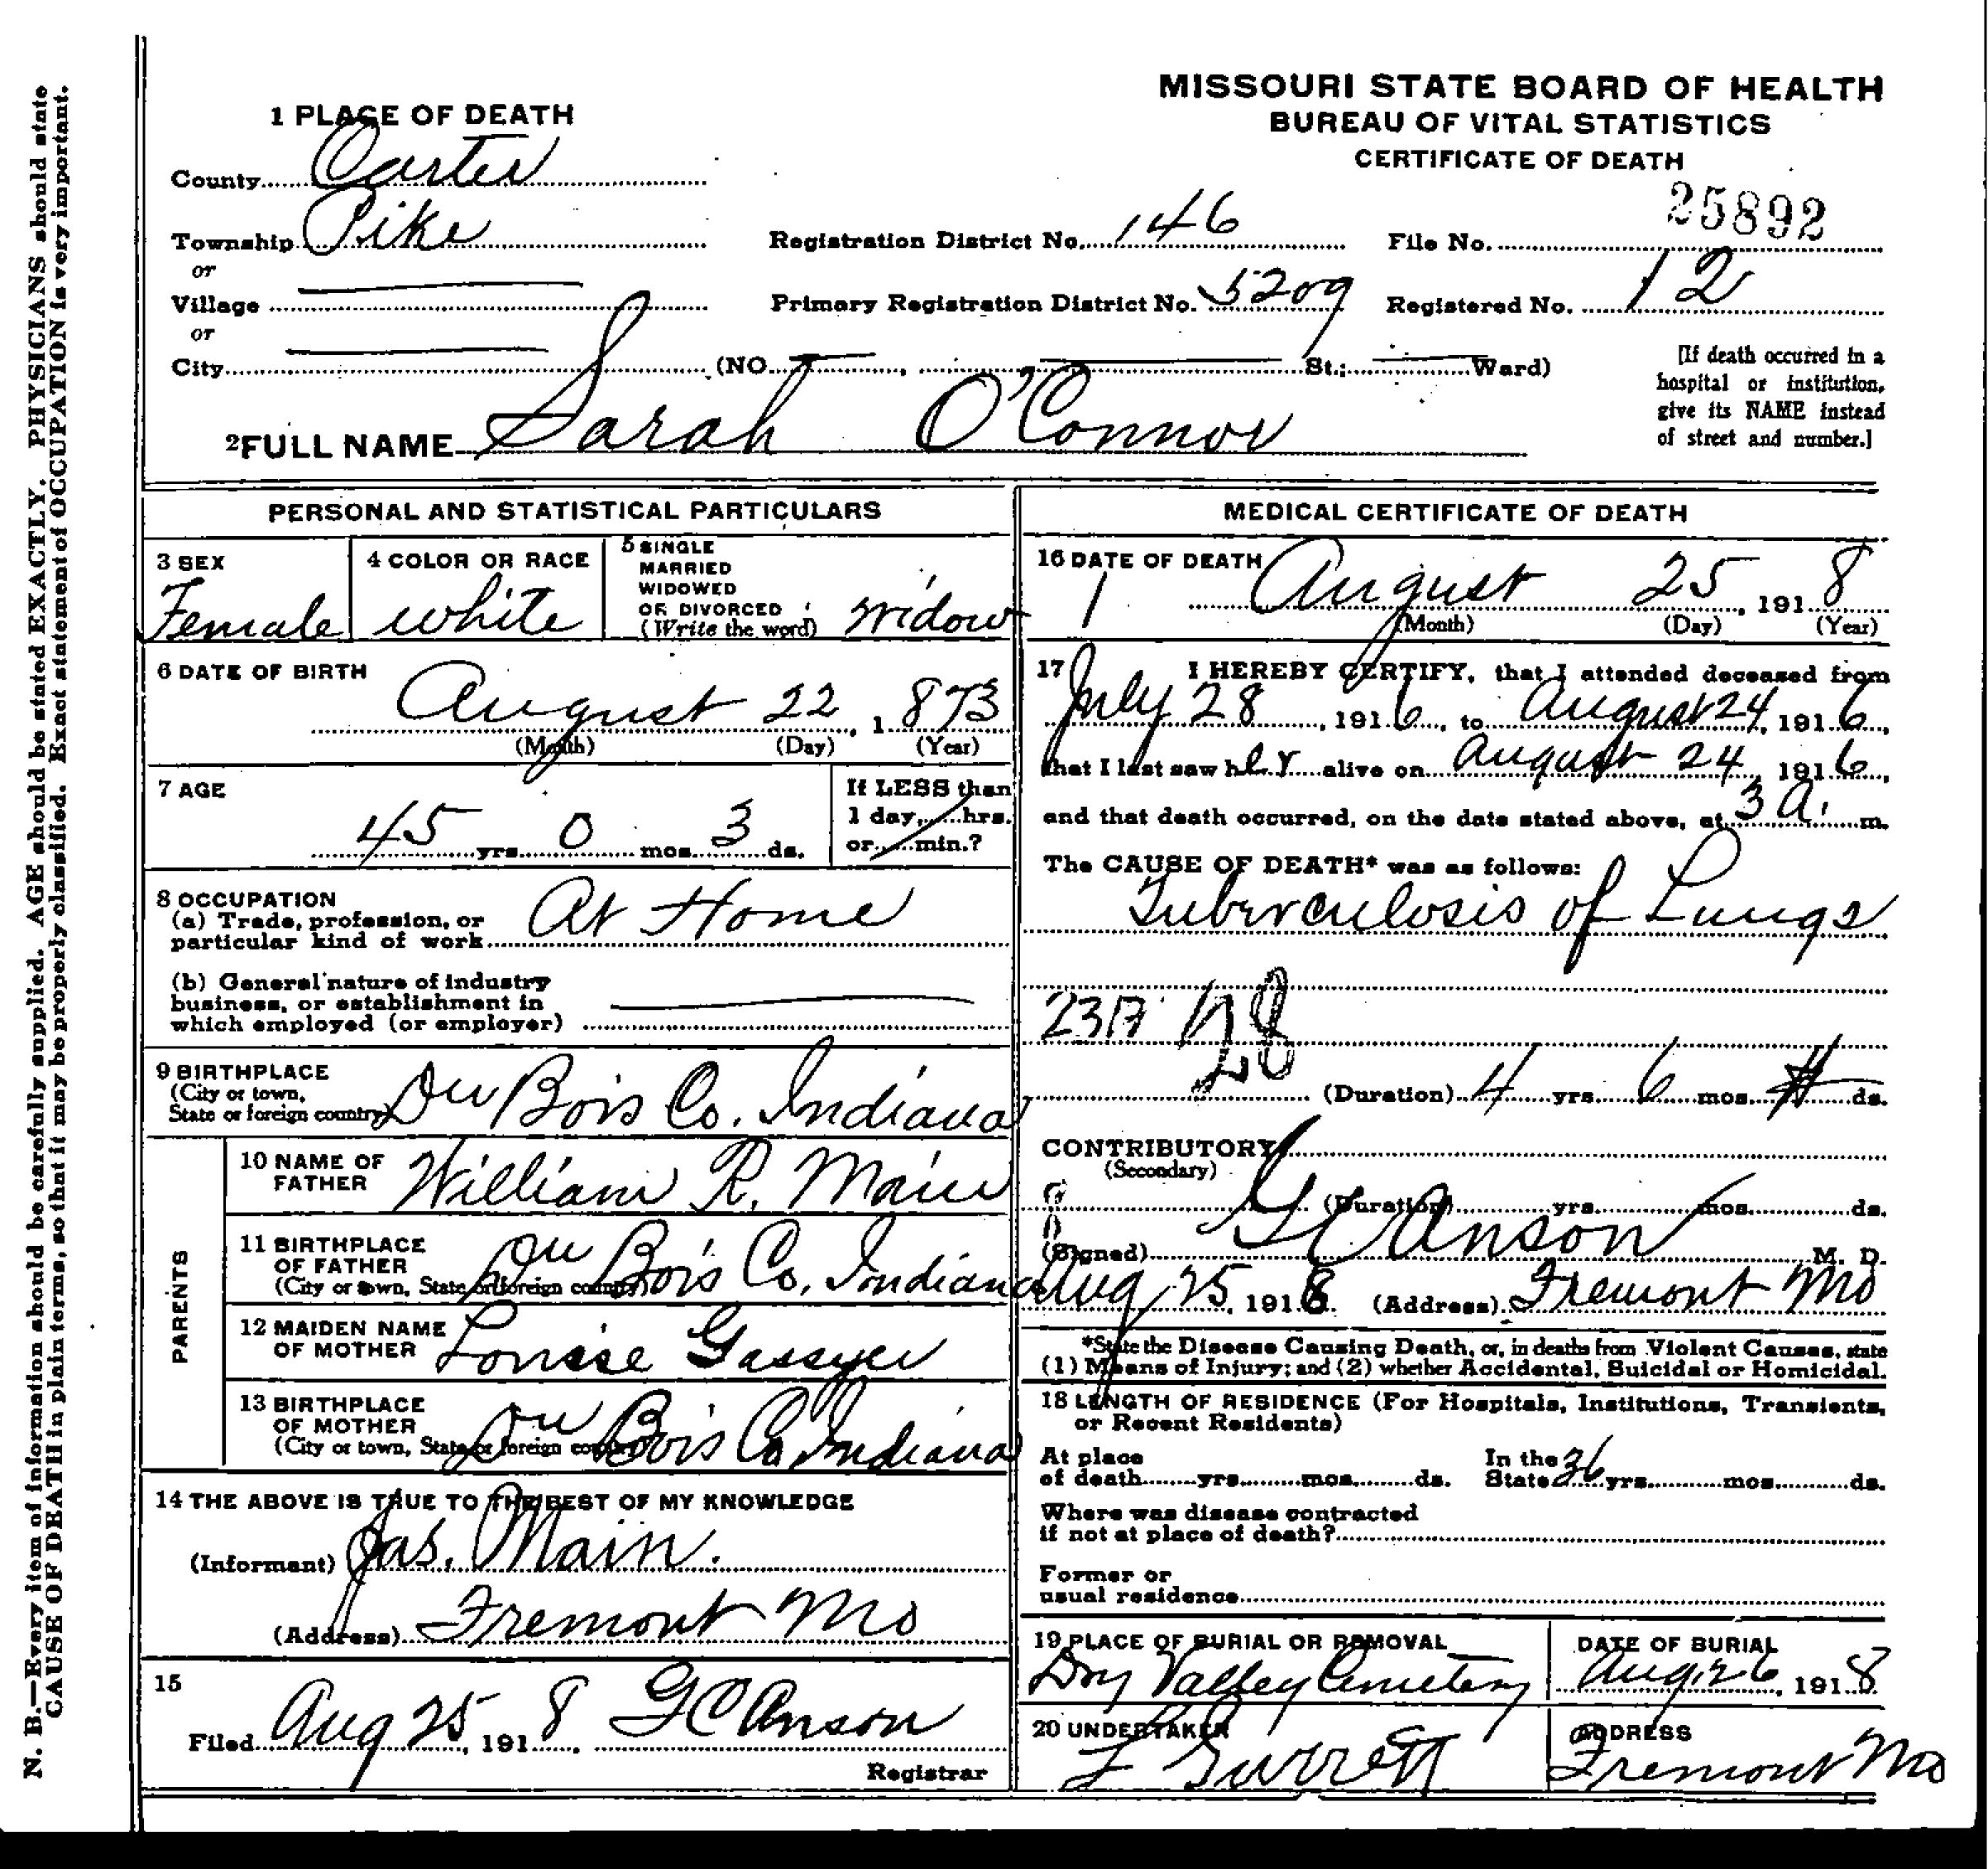 N. B.—Every item of information should be carefully supplied. AGE should be stated EXACTLY. PHYSICIANS should state
CAUSE OF DEATH in plain terms, so that it may be properly classified. Exact statement of OCCUPATION is very important.
MISSOURI STATE BOARD OF HEALTH
BUREAU OF VITAL STATISTICS
CERTIFICATE OF DEATH
1 PLACE OF DEATH
County Carter
Township Pike Registration District No. 146 File No. 25892
or
Village Primary Registration District No. 5209 Registered No. 12
or
City (NO. , St.; Ward)
[If death occurred in a
hospital or institution,
give its NAME instead
of street and number.]
2 FULL NAME Sarah O'Connor
PERSONAL AND STATISTICAL PARTICULARS
3 SEX
Female
4 COLOR OR RACE
white
5 SINGLE
MARRIED
WIDOWED
OR DIVORCED
(Write the word) widow
6 DATE OF BIRTH
August 22, 1873
(Month) (Day) (Year)
7 AGE
45 yrs. 0 mos. 3 ds.
If LESS than
1 day, hrs.
or min.?
8 OCCUPATION
(a) Trade, profession, or
particular kind of work At Home
(b) General nature of industry
business, or establishment in
which employed (or employer)
9 BIRTHPLACE
(City or town,
State or foreign country) Du Bois Co. Indiana
PARENTS
10 NAME OF
FATHER William R. Main
11 BIRTHPLACE
OF FATHER
(City or town, State or foreign country) Du Bois Co. Indiana
12 MAIDEN NAME
OF MOTHER Louise
13 BIRTHPLACE
OF MOTHER
(City or town, State or foreign country) Du Bois Co Indiana
14 THE ABOVE IS TRUE TO THE BEST OF MY KNOWLEDGE
(Informant) Jas. Main.
(Address) Fremont Mo
15
Filed Aug 25, 1918 G C Anson
Registrar
MEDICAL CERTIFICATE OF DEATH
16 DATE OF DEATH
1 August 25, 1918
(Month) (Day) (Year)
17 I HEREBY CERTIFY, that I attended deceased from
July 28, 1916, to August 24, 1916,
that I last saw her alive on August 24, 1916,
and that death occurred, on the date stated above, at 3 a. m.
The CAUSE OF DEATH* was as follows:
Tuberculosis of Lungs
28
(Duration) 4 yrs. 6 mos. ds.
CONTRIBUTORY
(Secondary)
(Duration) yrs. mos. ds.
(Signed) G C Anson M. D.
Aug 25, 1918. (Address) Fremont Mo
*State the Disease Causing Death, or, in deaths from Violent Causes, state
(1) Means of Injury; and (2) whether Accidental, Suicidal or Homicidal.
18 LENGTH OF RESIDENCE (For Hospitals, Institutions, Transients,
or Recent Residents)
At place
of death yrs. mos. ds.
In the
State 36 yrs. mos. ds.
Where was disease contracted
if not at place of death?
Former or
usual residence
19 PLACE OF BURIAL OR REMOVAL
Dry Valley Cemetery
DATE OF BURIAL
Aug. 26, 1918
20 UNDERTAKER
ADDRESS
Fremont Mo